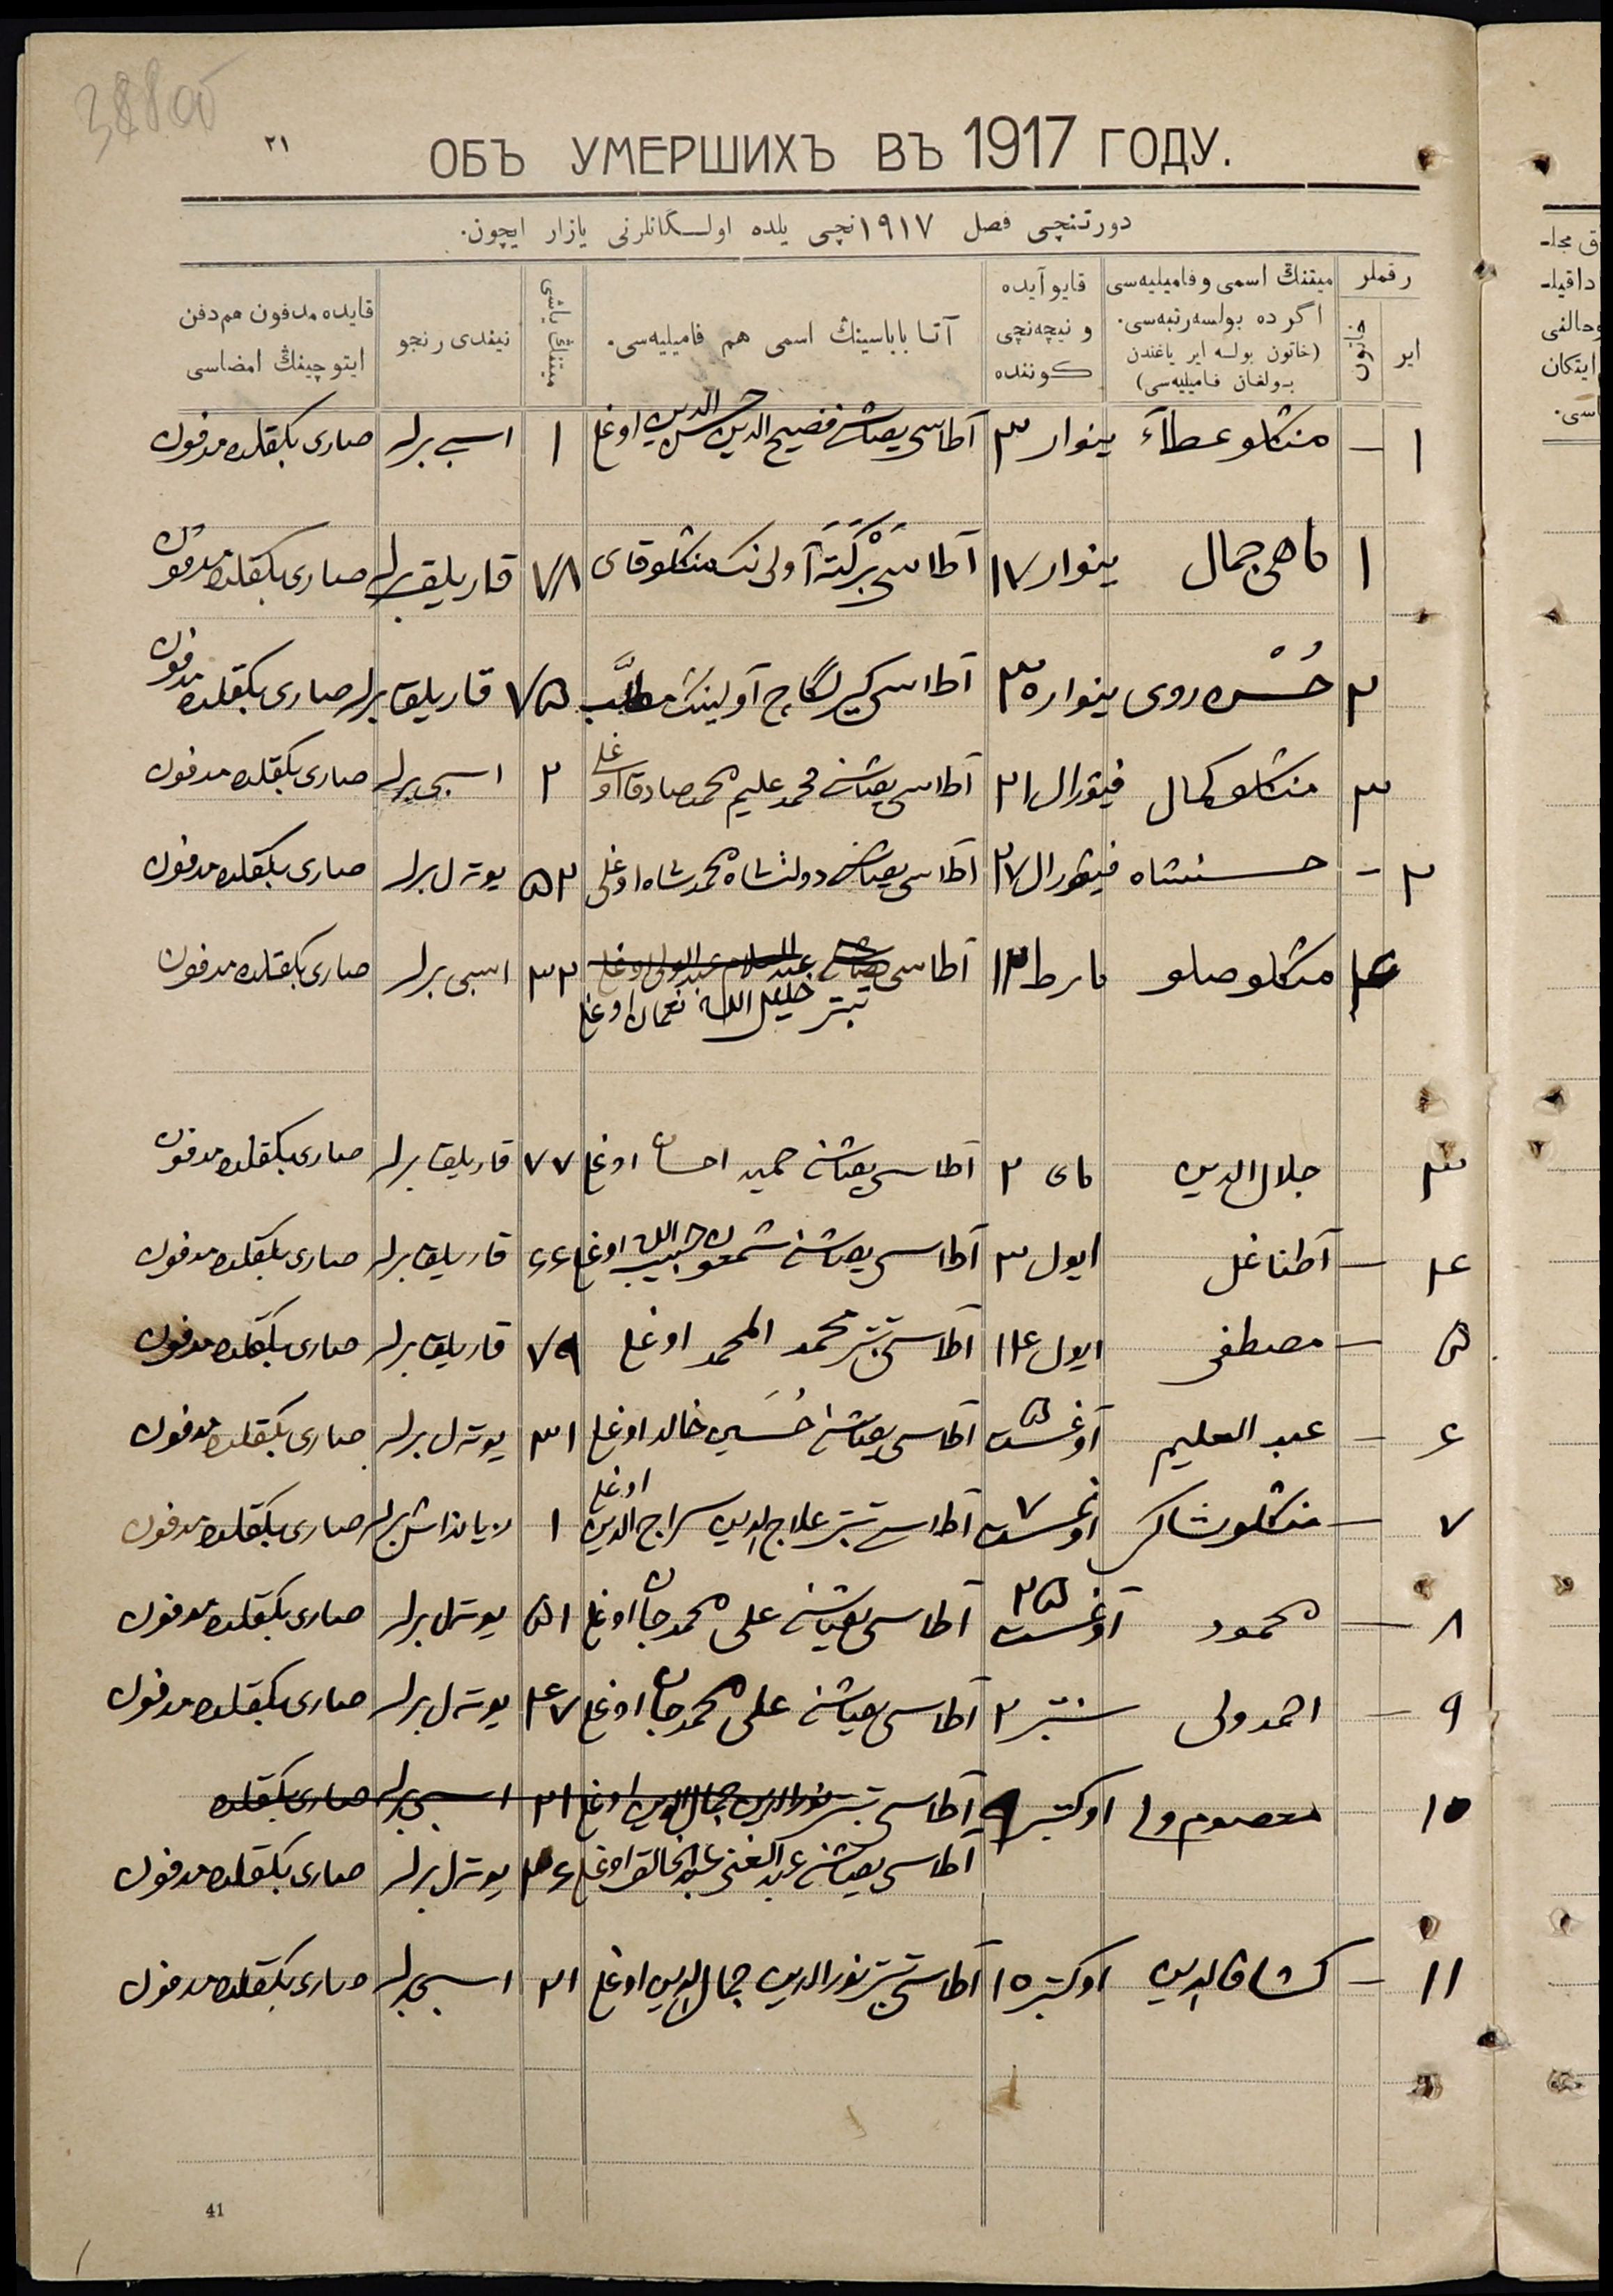 38800
٢١
ОБЪ УМЕРШИХЪ ВЪ 1917 ГОДУ.
دورتنچی فصل ١٩١٧نچی یلده اولـــگانلرنی یازار ایچون.
رقملر
ایر
خاتون
میتنڭ اسمی و فامیلیه‌سی
اگر ده بولسه رتبه‌سی.
(خاتون بولسه ایر یاغندن
بـولغان فامیلیه‌سی)
قایو آیده
و نیچه‌نچی
کوننده
آتـا باباسینڭ اسمی هم فامیلیه‌سی.
میتنڭ یاشی
نیندی رنجو
قایده مدفون هم دفن
ایتوچینڭ امضاسی
١ — منکلو عطاء ینوار ٣ آطاسی یصاشنه فصیح الدین حسن الدین اوغلی ١ اسبی برله صاری بکقلده مدفون
١ ماهی جمال ینوار ١٧ آطاسی آولی نک منکلوقای ٧٨ قاریلق برله صاری بکقلده مدفون
٢ حُسْن روی ینوار ٣٠ آطاسی آولینک مطلّب ٧٥ قاریلق برله صاری بکقلده مدفون
٣ منکلو کمال فیورال ٢١ آطاسی یصاشنه محمد علیم محمد صادق اوغلی ٢ اسبی برله صاری بکقلده مدفون
٢ — حسنشاه فیورال ٢٧ آطاسی یصاشنه دولتشاه محمد شاه اوغلی ٥٢ یوتل برله صاری بکقلده مدفون
٤ منکلو صلو مارط ١٢ آطاسی یصاشنه عبد السلام عبد الولی اوغلی ٣٢ اسبی برله صاری بکقلده مدفون
تبتر خلیل الله نعمان اوغلی
٣ جلال الدین مای ٢ آطاسی یصاشنه حمید احسان اوغلی ٧٧ قاریلق برله صاری بکقلده مدفون
٤ — آطناغل ایول ٣ آطاسی یصاشنه شمعون حبیب الله اوغلی ٦٦ قاریلق برله صاری بکقلده مدفون
٥ — مصطفی ایول ١٤ آطاسی تبتر محمد المحمد اوغلی ٧٩ قاریلق برله صاری بکقلده مدفون
٦ — عبد العلیم آوغست ٥ آطاسی یصاشنه حُسَین خالد اوغلی ٣١ یوتل برله صاری بکقلده مدفون
٧ — منکلو شاکر اوغست ٧ آطاسی تبتر علاج الدین سراج الدین اوغلی ١ برله صاری بکقلده مدفون
٨ — محمود آوغست ٢٥ آطاسی یصاشنه علی محمد جان اوغلی ٥١ یوتل برله صاری بکقلده مدفون
٩ — احمد ولی سنتبر ٢ آطاسی یصاشنه علی محمد جان اوغلی ٤٧ یوتل برله صاری بکقلده مدفون
١٠ معصوم ولی اوکتبر ٩ آطاسی تبتر نور الدین جمال الدین اوغلی ٢١ اسبی برله صاری بکقلده
آطاسی یصاشنه عبد الغنی عبد الخالق اوغلی ٣٦ یوتل برله صاری بکقلده مدفون
١١ — کشاف الدین اوکتبر ١٥ آطاسی تبتر نور الدین جمال الدین اوغلی ٢١ اسبی برله صاری بکقلده مدفون
41
ق مجلـ
داقیلـ
وحالنی
ایتکان
اسی.